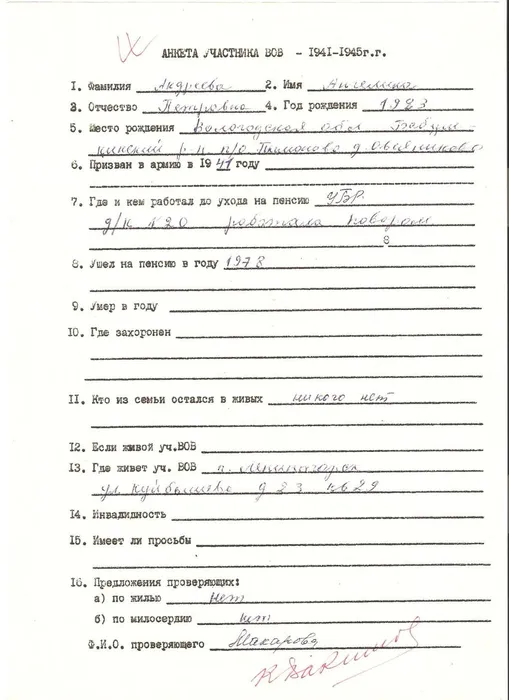 АНКЕТА УЧАСТНИКА ВОВ - 1941-1945г.г.
1. Фамилия Андреева 2. Имя Ангелина
3. Отчество Петровна 4. Год рождения 1923
5. Место рождения Вологодская обл Бабуш
кинский р-н п/о
6. Призван в армию в 1941 году
7. Где и кем работал до ухода на пенсию УБР
д/к №20 работала поваром
8
8. Ушел на пенсию в году 1978
9. Умер в году
10. Где захоронен
11. Кто из семьи остался в живых никого нет
12. Если живой уч.ВОВ
13. Где живет уч. ВОВ г. Лениногорск
ул Куйбышева д 23 кв 29
14. Инвалидность
15. Имеет ли просьбы
16. Предложения проверяющих:
а) по жилью нет
б) по милосердию нет
Ф.И.О. проверяющего Макарова